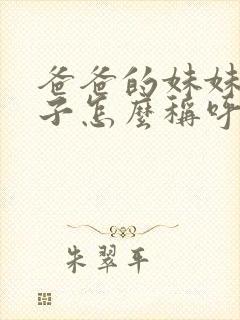 爸爸的妹妹
子怎麼稱呼
朱翠平